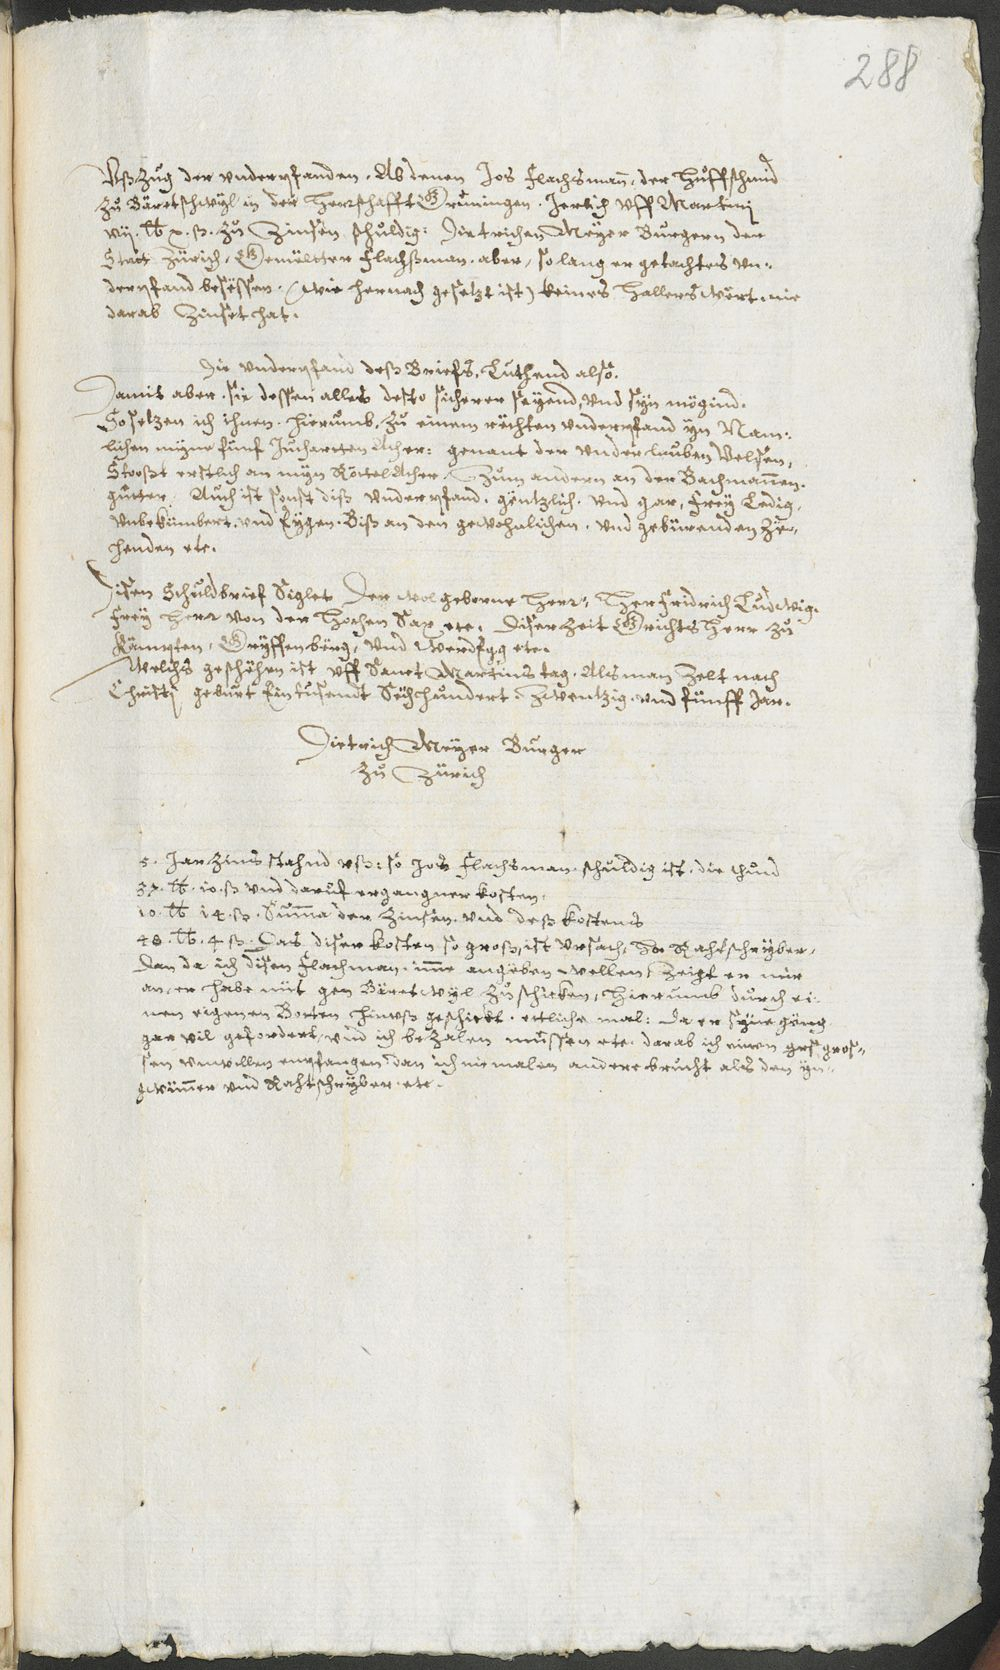 288
Vßzug der vnderpfanden. Ab denen Jos Flachsman̄, der Huffschmid
zů Bäretschwyl in der Herrschafft Grůningen. Jerlich vff Martinj
vij. lb x. ß. zů Zinsen schuldig: Dietrichen Meÿer Burgern der
Statt Zürich, Gemälter Flachßman. aber, so lang er getachtes vn-
derpfand beseßen. (wie hernach gesetzt ist) keines Hallers wärt. nie
darab Zinset hat.
Die vnderpfand deß Briefs, Luthend also.
Damit aber. sie dessen alles desto sicherer seyend, vnd syn mögind.
So setzen ich ihnen. hierumb, zů einem rächten vnderpfand yn Nam-
lichen myne fünf Jucharten Acher: genant der vnder lauben Velsen,
Stooßt erstlich an myn Röttel Acher. Zum andern an der Bachman̄en.
gůtter. Auch ist sonst diß vnderpfand. gentzlich. vnd gar, Frey Ledig,
vnbekümbert. vnd Eygen. Biß an den gewohnlichen. vnd gebürenden Ze-
henden etc.
Disen Schuldbrief Siglet Der wolgeborne Herr, Her Fridrich Ludwig.
Frey Herr von der Hochen Sax etc. Diser Zeit Grichts Herr zů
Kämpten, Gryffenbërg, vnd Werdegg etc.
Welchs geschëhen ist vff Sanct Martins tag. Als man Zelt nach
Christj geburt Ein tusendt Sächhundert. zwentzig. vnd fünff Jar.
Dietrich Meÿer Burger
zů Zürich
5. Jar Zins stahnd vß: so Jos Flachsman. schuldig ist. die thůnd
37. lb. 10. ß vnd daruf ergangner kosten,
10. lb 14. ß. Sum̄a der Zinsen. vnd deß kostens
48. lb. 4 ß. Das diser kosten so groß, ist vrsach, Hr Rahtschryber.
Dan da ich disen Flachman. im̄e angëben wellen, zeigt er mir
an, er habe nüt gen Bäretwyl zů schicken, hierumb durch ei-
nen eigenen Botten hinuß geschickt. ettliche mal: da er syne gëng
gar vil gefordert, vnd ich bezalen müssen etc. darab ich einen gros gros-
sen vnwillen empfangen. dan ich niemalen andere brucht als den yn-
gwün̄er vnd Rahtschryber. etc.